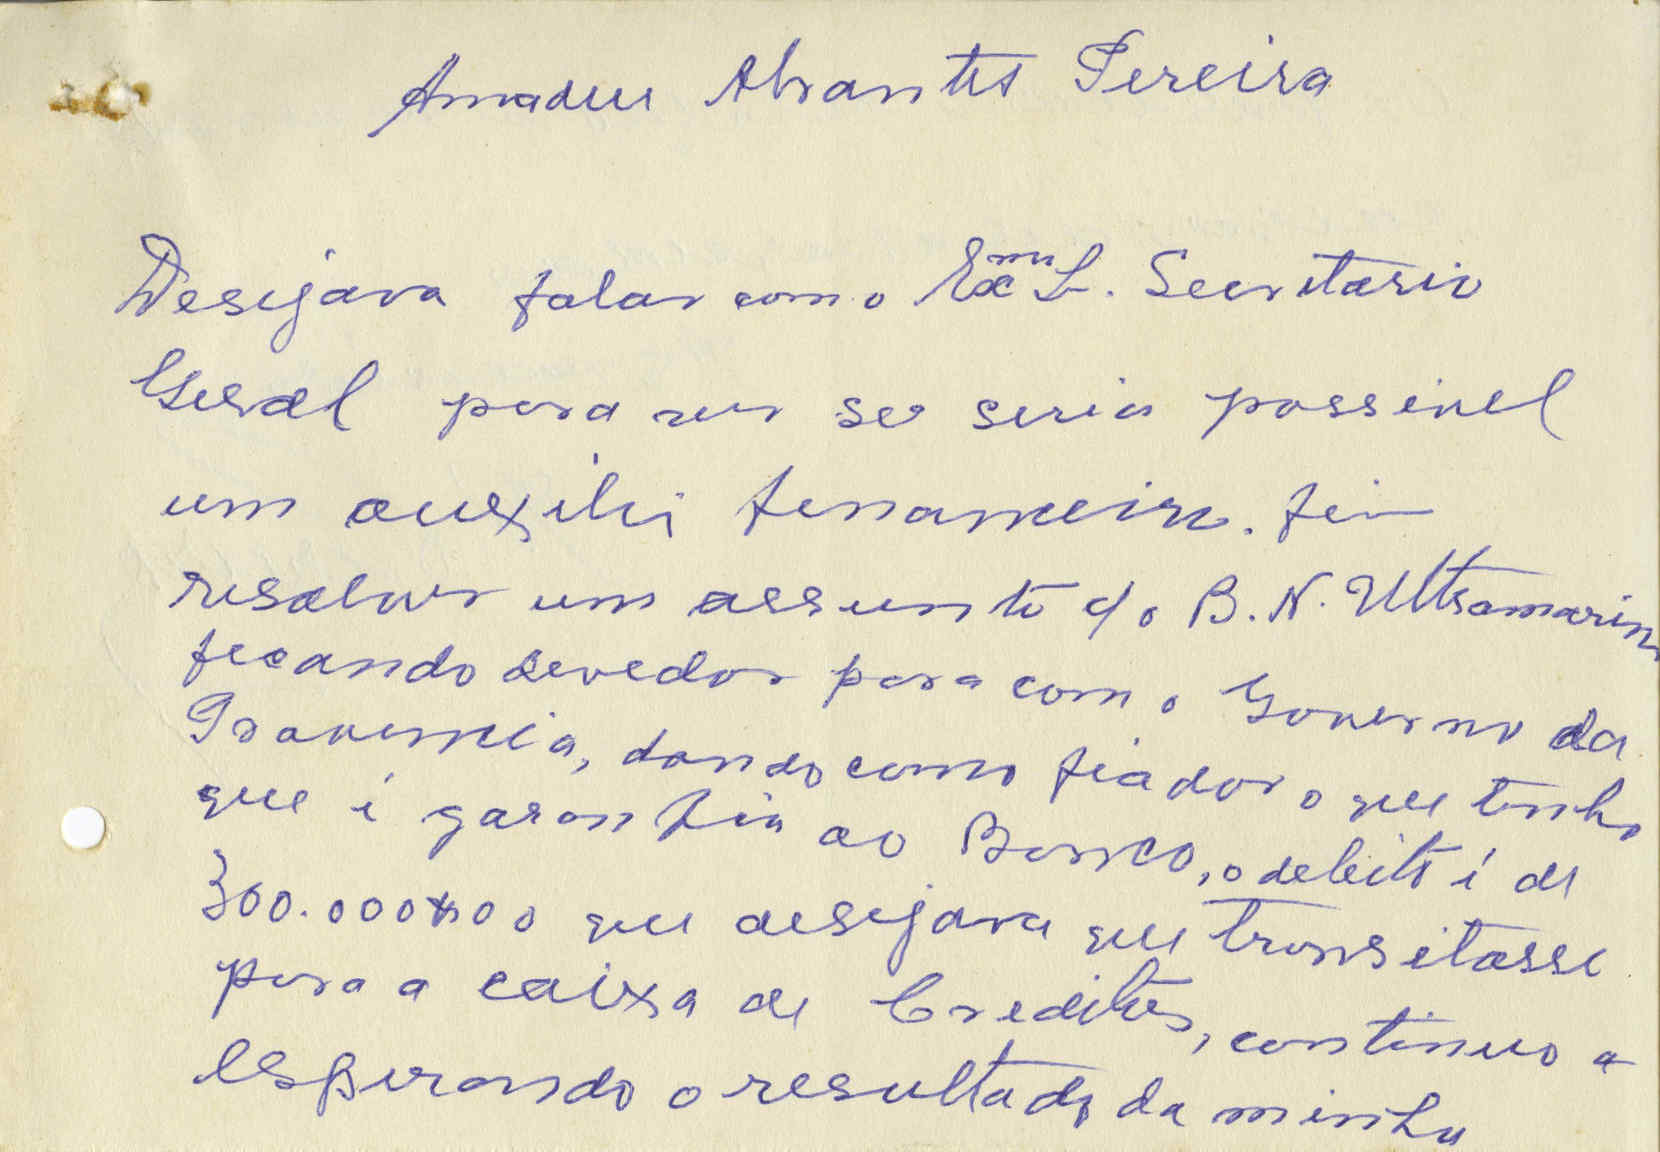 Amadeu Abrantes Pereira
Desejava falar com o Exmo Sr. Secretario
Geral para ver se seria possivel
um auxilio financeiro. fim
resolver um assunto c/o B. N. Ultramarino
ficando devedor para com o Governo da
Provincia, dando como fiador o que tenho
que é garantia ao Banco, o debito é de
300.000$00 que desejava que transitasse
para a caixa de Creditos, continuo a
esperando o resultado da minha